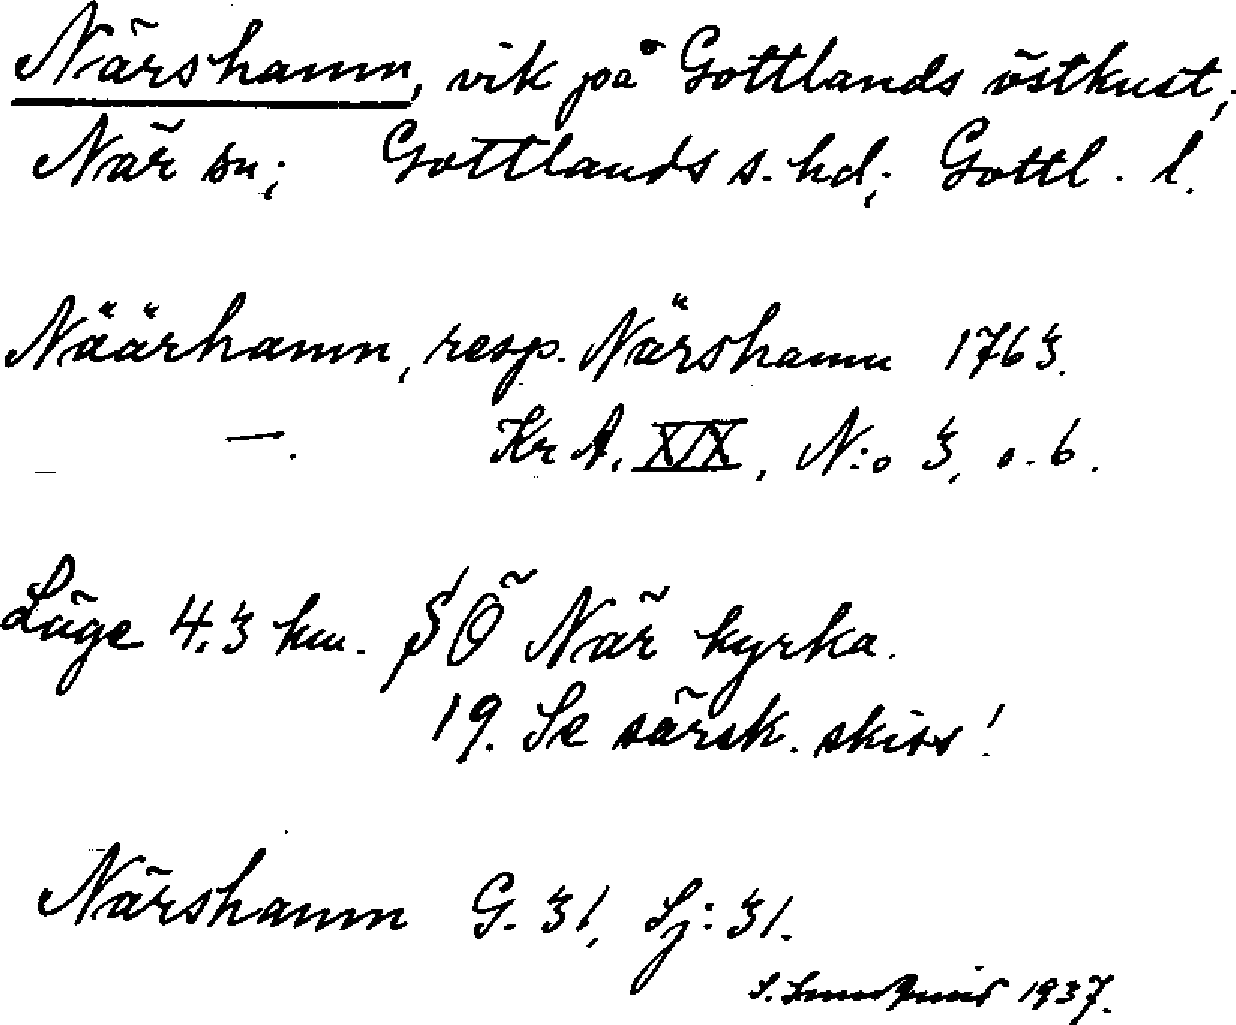 Närshamn, vik på Gottlands östkust;
När sn; Gottlands s. hd; Gottl. l.
Näärhamn, resp. Närshamn 1763.
—. Kr A. XIX, N:o 3, s. 6.
Läge 4.3 km. SÖ När kyrka.
19. Se särsk. skiss!
Närshamn G. 31, Sj: 31.
S. 1937.